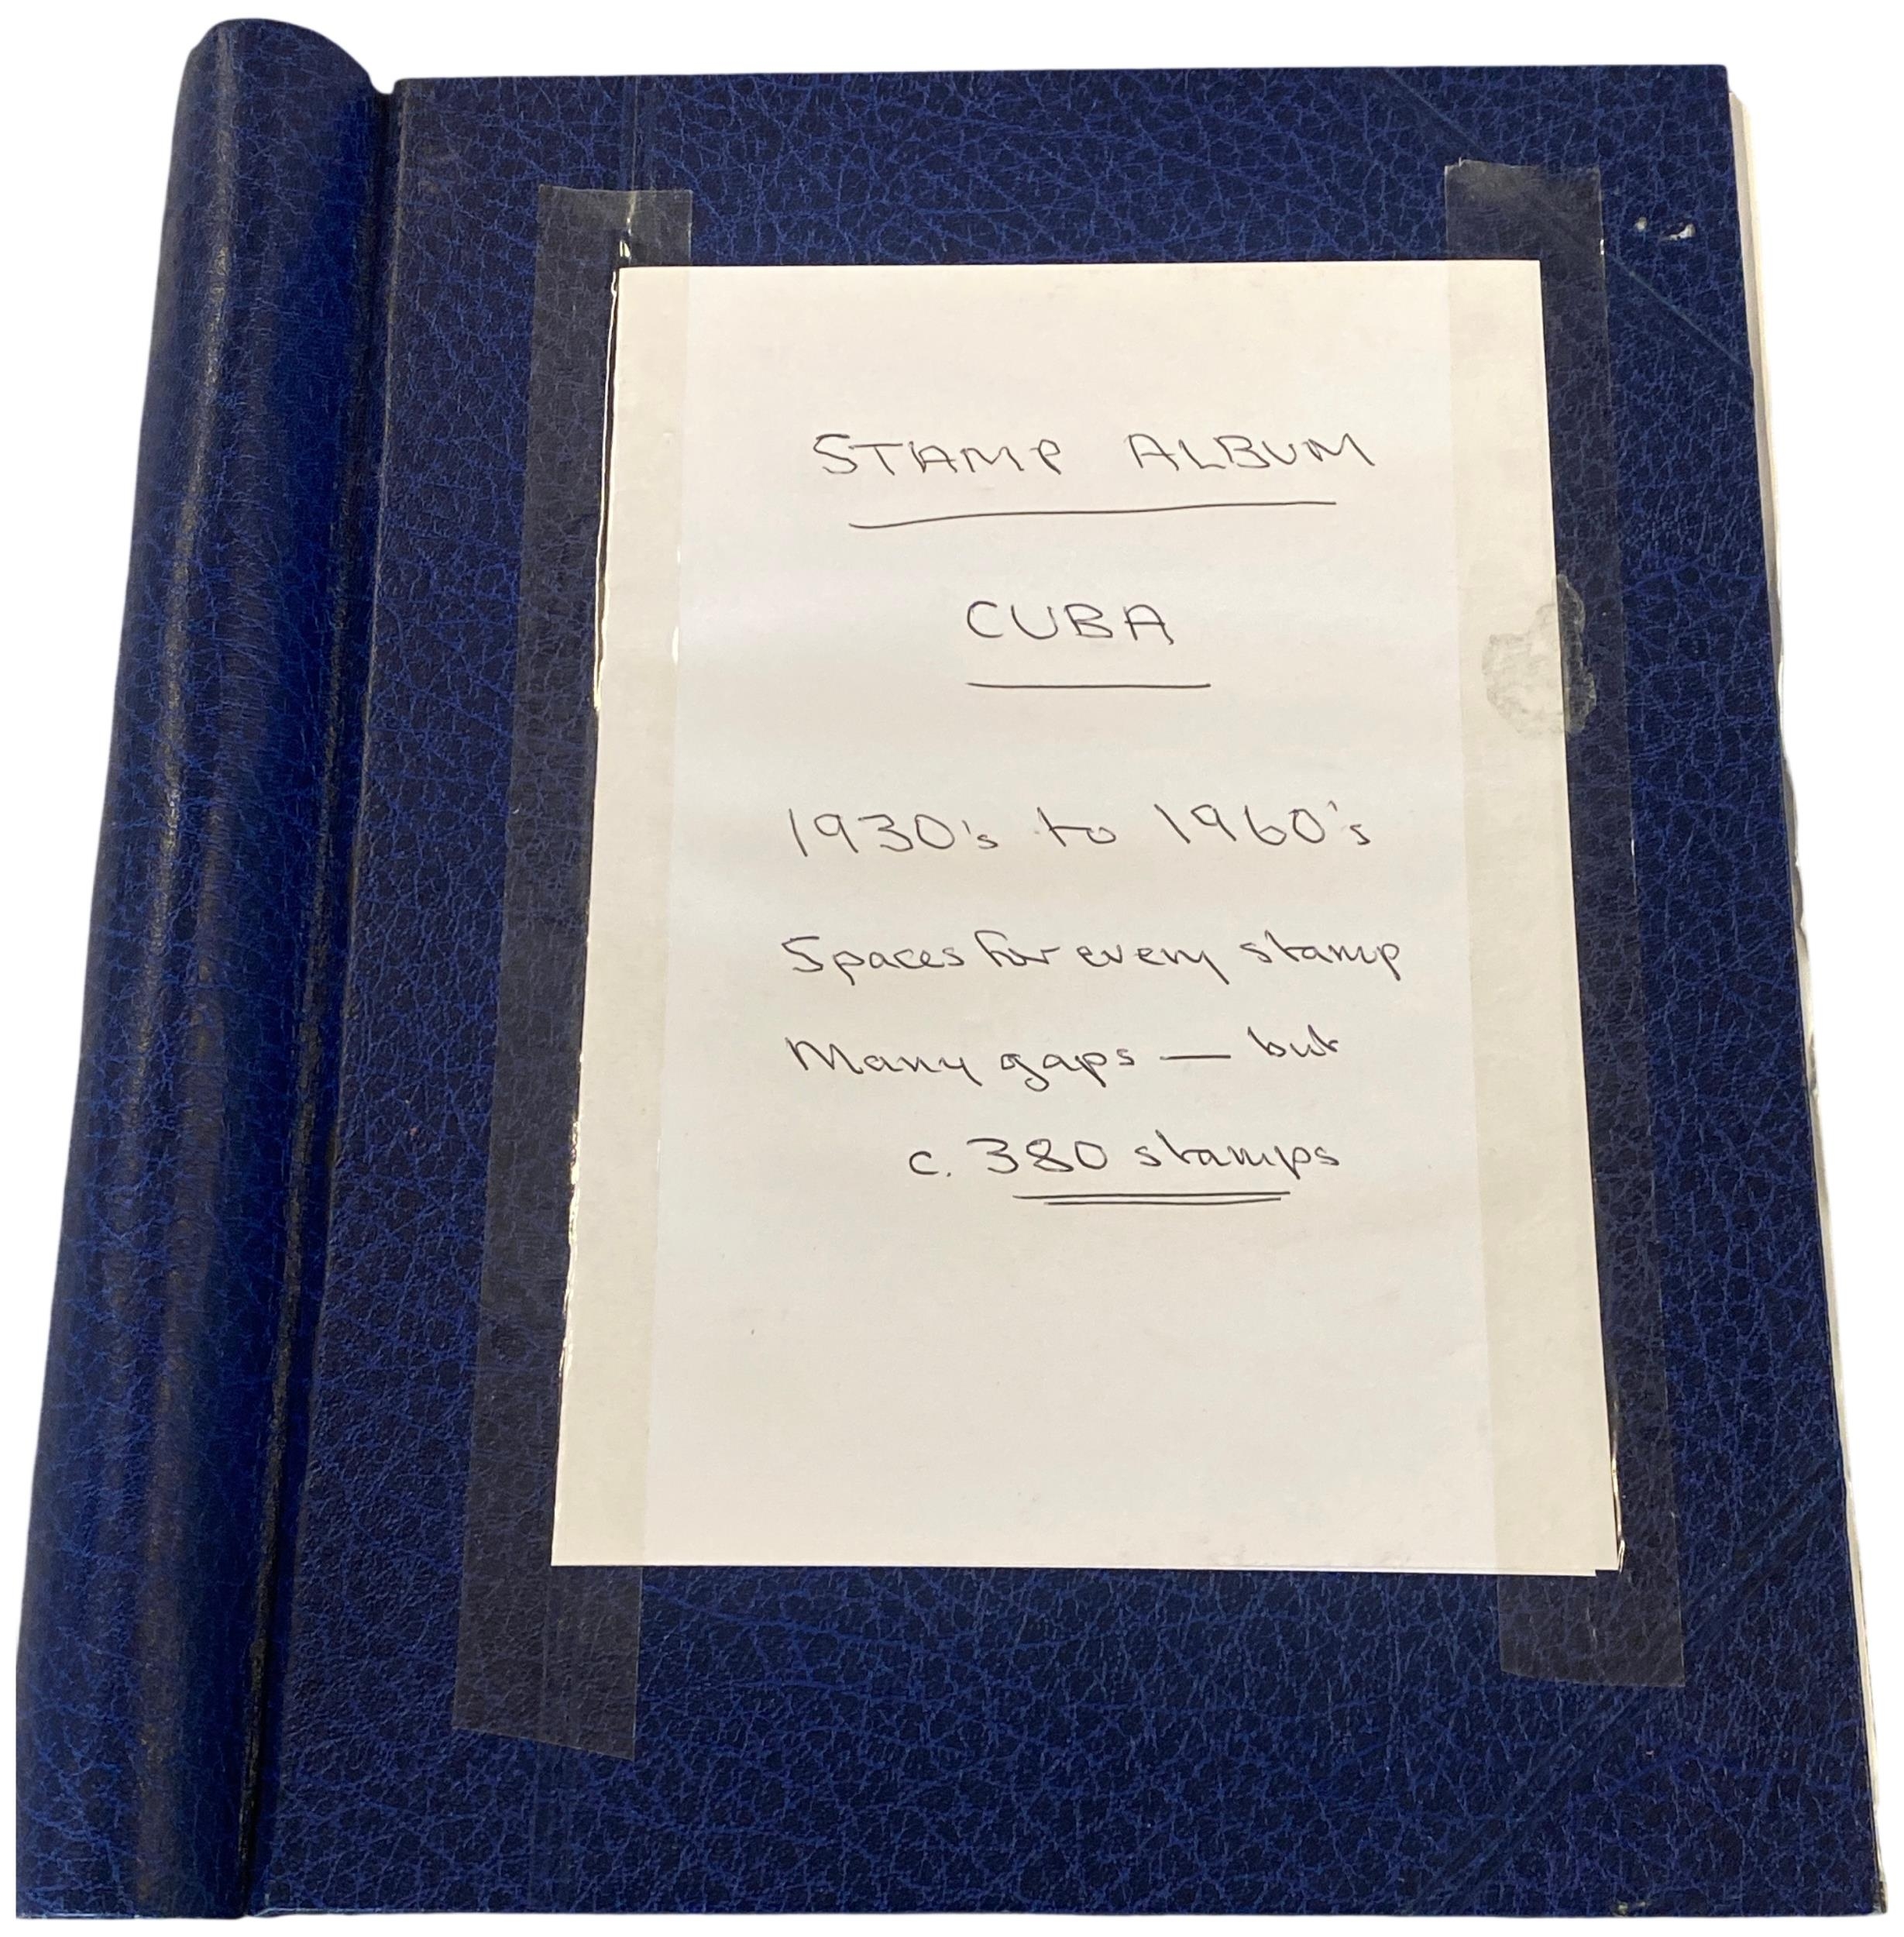 STAMP ALBUM
CUBA
1930's to 1960's
Spaces for every stamp
Many gaps — but
c. 380 stamps